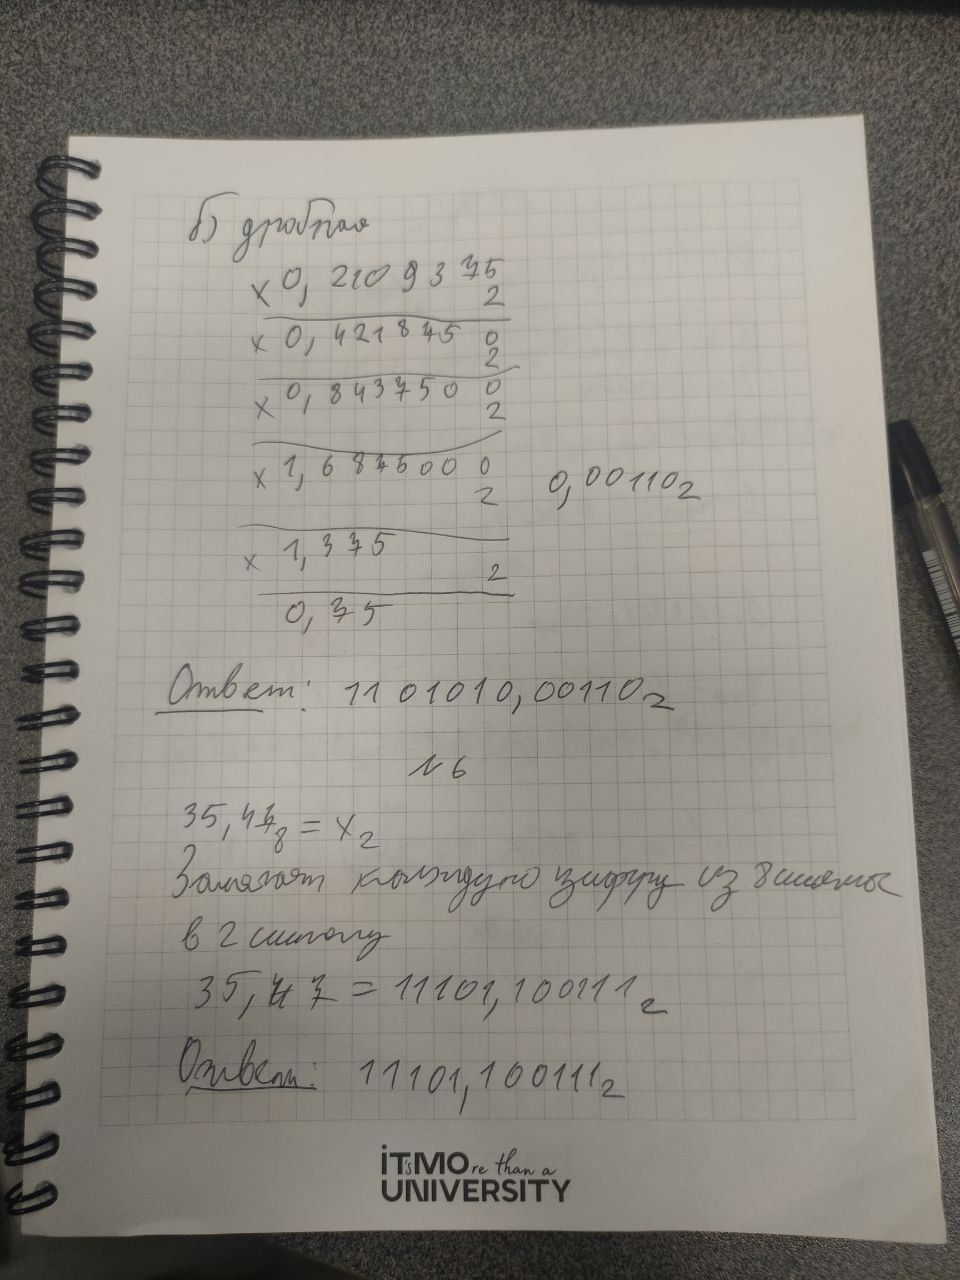 б) дробная
x 0, 2109375
2
x 0, 421845 0
2
x 0, 843750 0
2
x 1, 687500 0
2
0,00110₂
x 1, 375
2
0, 75
Ответ: 1101010,00110₂
№6
35,47₈ = x₂
Заменяет каждую цифру из 8 системы
в 2 систему
35,47 = 11101,100111₂
Ответ: 11101,100111₂
iT'sMOre than a
UNIVERSITY